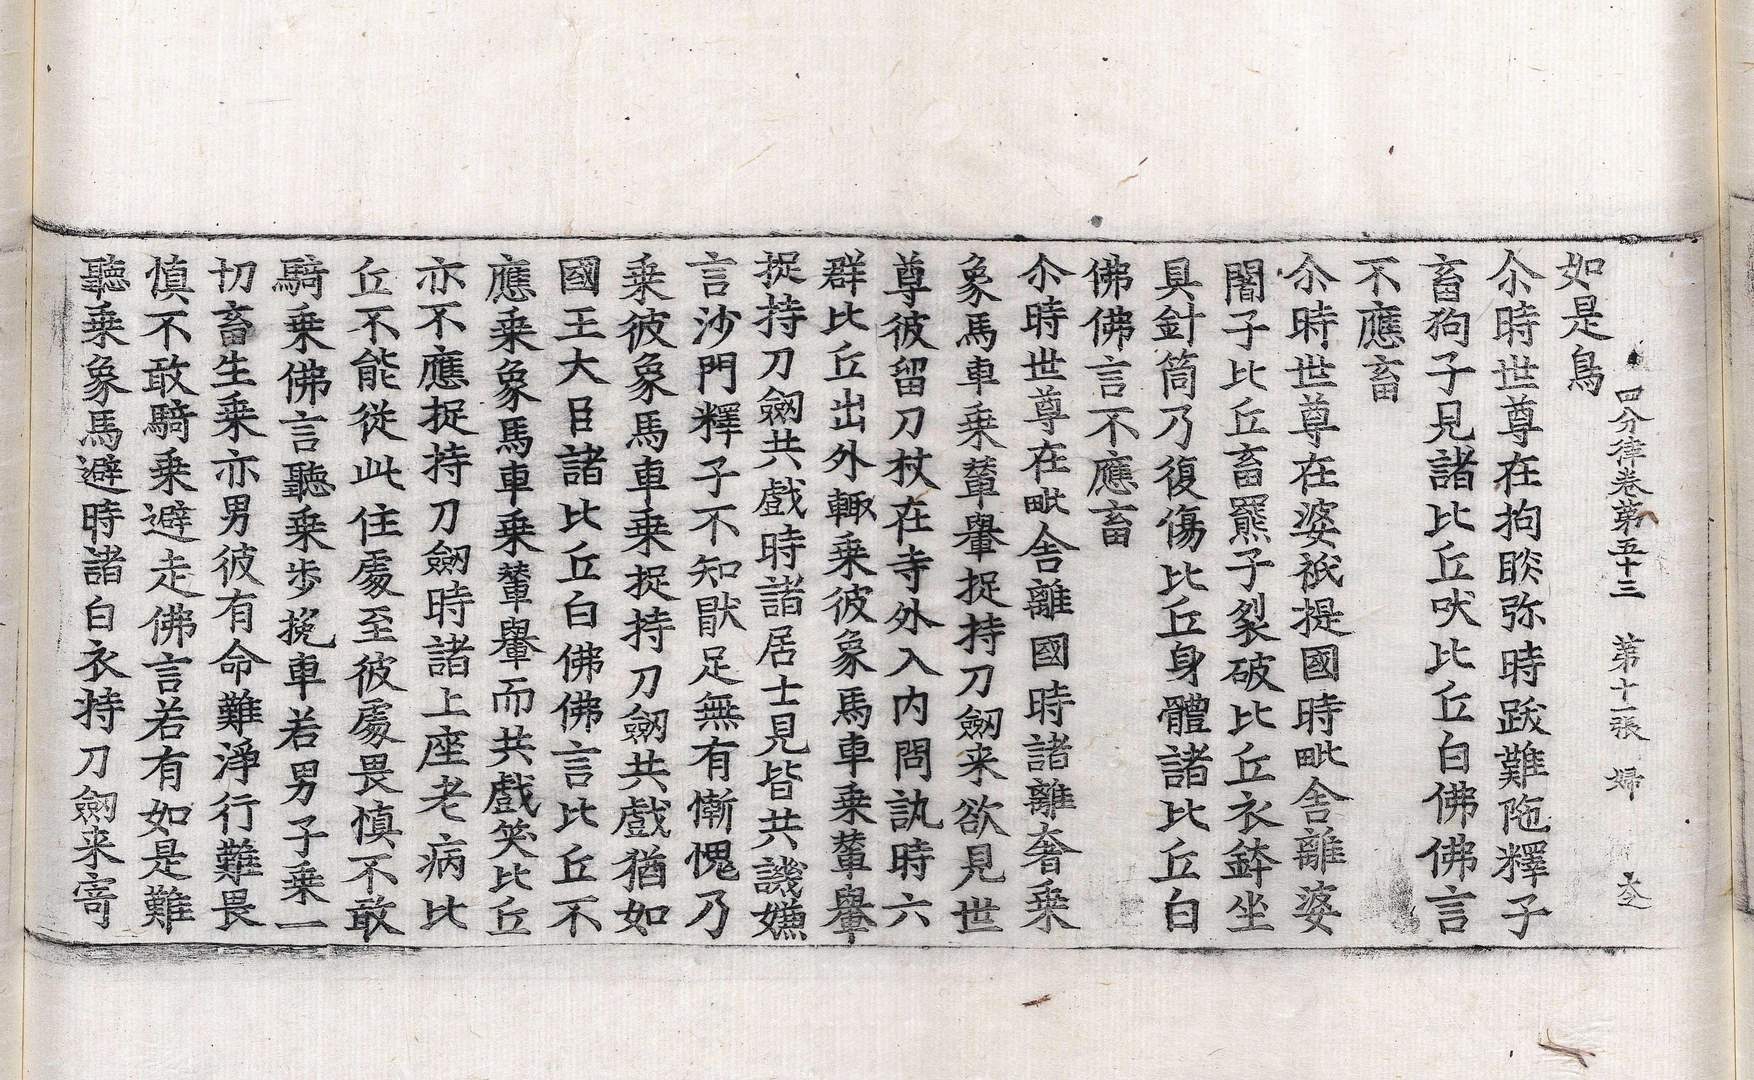 四分律卷第五十三　第十一張　婦
如是鳥
尒時世尊在拘睒弥時跋難陁釋子
畜狗子見諸比丘吠比丘白佛佛言
不應畜
尒時世尊在婆祇提國時毗舍離婆
闍子比丘畜羆子裂破比丘衣鉢坐
具針筒乃復傷比丘身體諸比丘白
佛佛言不應畜
尒時世尊在毗舍離國時諸離奢乗
象馬車乗輦轝捉持刀劔来欲見世
尊彼留刀杖在寺外入内問訊時六
群比丘出外輙乗彼象馬車乗輦轝
捉持刀劔共戲時諸居士見皆共譏嫌
言沙門釋子不知猒足無有慚愧乃
乗彼象馬車乗捉持刀劔共戲猶如
國王大臣諸比丘白佛佛言比丘不
應乗象馬車乗輦轝而共戲笑比丘
亦不應捉持刀劔時諸上座老病比
丘不能從此住處至彼處畏慎不敢
騎乗佛言聽乗步挽車若男子乗一
切畜生乗亦男彼有命難淨行難畏
慎不敢騎乗避走佛言若有如是難
聽乗象馬避時諸白衣持刀劔来寄